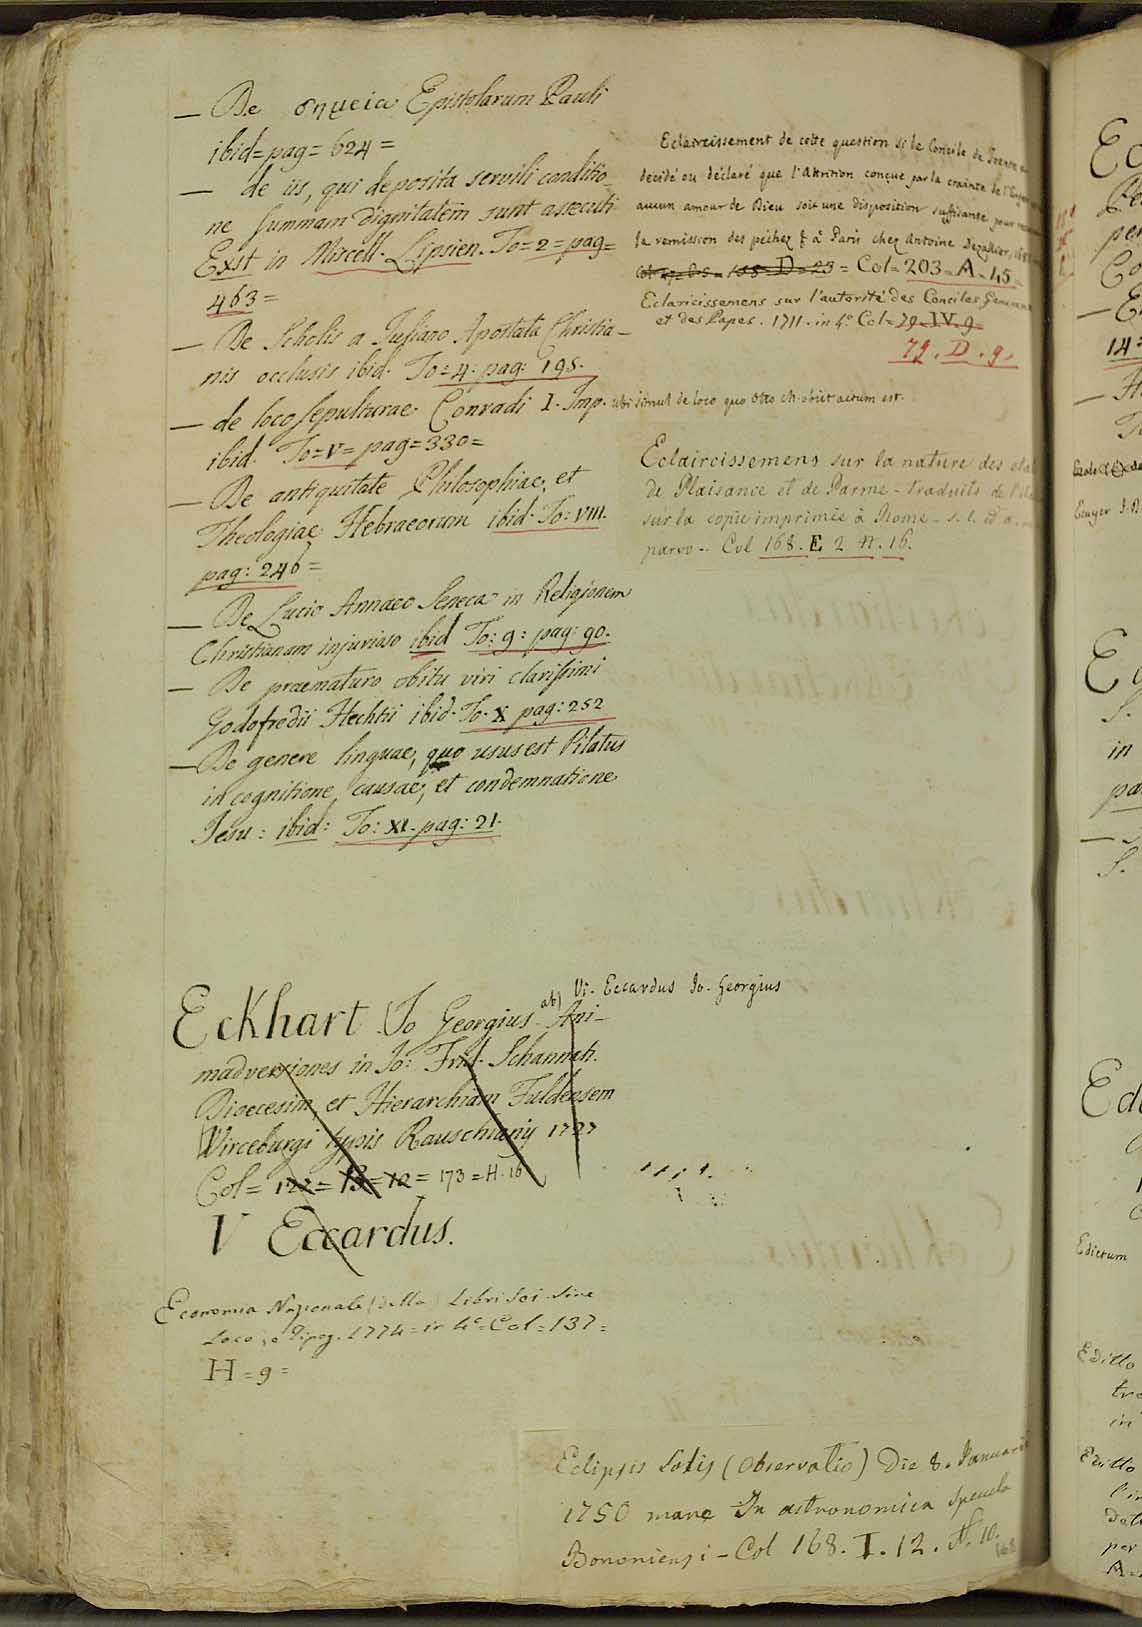 — De σημεια Epistolarum Pauli
ibid = pag = 624 =
— de iis, qui deposita servili conditio-
ne summam dignitatem sunt assecuti
Exst in Miscell. Lipsien. To = 2 = pag =
463 =
— De Scholis a Juliano Apostata Christia-
nis occlusis ibid. To = 4. pag: 195.
— de loco sepulturae Conradi I. Imp. ubi simul de loco quo Otto ch. obiit actum est.
ibid. To = V = pag = 330 =
— De antiquitate Philosophiae, et
Theologiae Hebraeorum ibid. To: VIII.
pag: 246 =
— De Lucio Annaeo Seneca in Religionem
Christianam injurioso ibid To: 9: pag: 90.
— De praematuro obitu viri clarissimi
Godofredii Hechtii ibid. To. X pag: 252
— De genere linguae, quo usus est Pilatus
in cognitione causae, et condemnatione
Jesu: ibid: To: XI. pag: 21.
Eckhart Jo Georgius ab) Ani-
madversiones in Jo: Frid. Schannati
Dioecesim, et Hierarchiam Fuldensem
Wirceburgi typis 1727
Col = 122 = 13 = 12 = 173 = H. 16
V Eccardus.
Vi. Eccardus Jo. Georgius
Economia Nazionale (della) Libri sei sine
Loco, e Tipog. 1774 = in 4° = Col = 137 =
H = 9 =
Eclaircissement de cette question si le Concile de Trente a
decidé ou déclaré que l'Attrition conçue par la crainte de l'Enfer
aucun amour de Dieu soit une disposition suffisante pour
la remission des péchez à Paris chez Antoine Dezallier,
158 = D = 23 = Col = 203 = A = 45 =
Eclaricissemens sur l'autorité des Conciles Generaux
et des Papes. 1711. in 4° Col = 79. IV. 9 =
79. D. 9.
Eclaircissemens sur la nature des
de Plaisance et de Parme - traduits de
sur la copie imprimée à Rome - s. l.
parvo - Col 168. E 2 n. 16.
Eclipsis Solis (Observatio) Die 8. Januarii
1750 mane In astronomica specula
Bononiensi - Col 168. I. 12. N. 10.
168